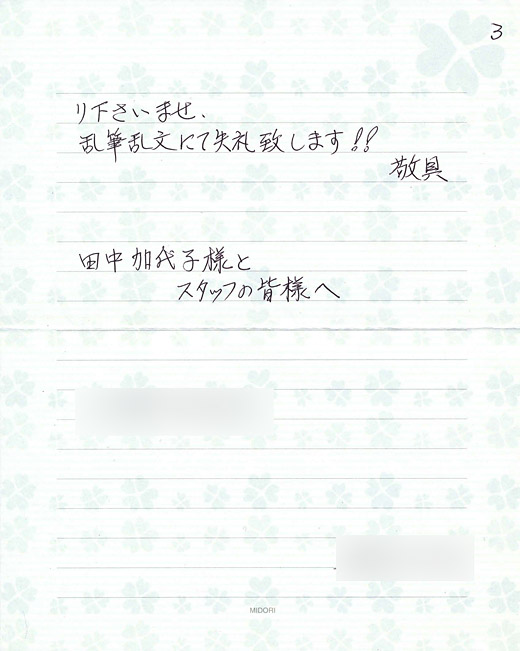 3
り下さいませ.
乱筆乱文にて失礼致します!!
敬具
田中加代子様と
スタッフの皆様へ
MIDORI